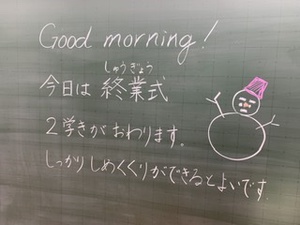 Good morning!
しゅうぎょう
今日は 終業式
2学きが おわります。
しっかり しめくくりができるとよいです。